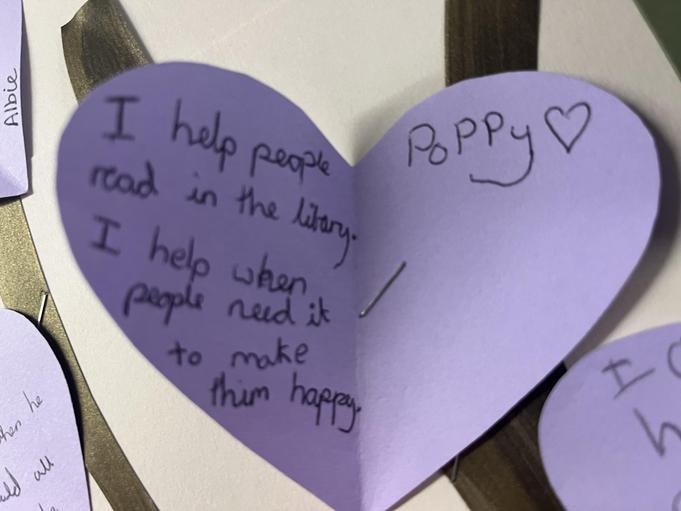 Albie
I help people
read in the libary.
I help when
people need it
to make
thim happy.
Poppy ♡
when he
all
I
h